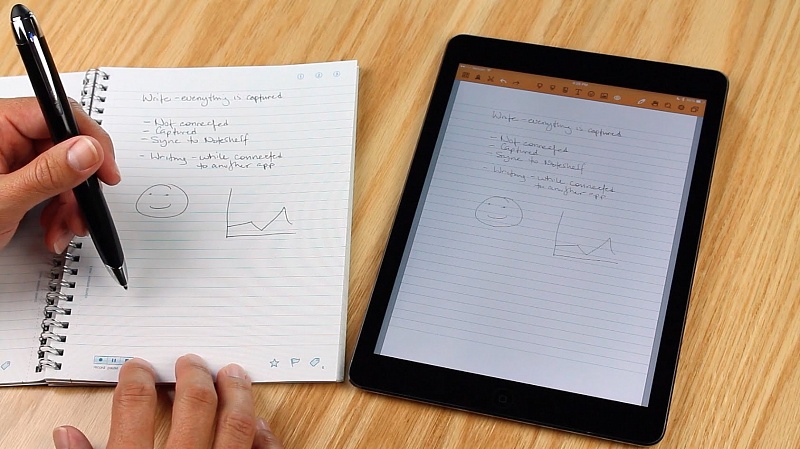 Write - everything is captured
- Not connected
- Captured
- Sync to Noteshelf
- Writing - while connected
to another app
record pause
Write - everything is captured
- Not connected
- Captured
- Sync to Noteshelf
- Writing - while connected
to another app